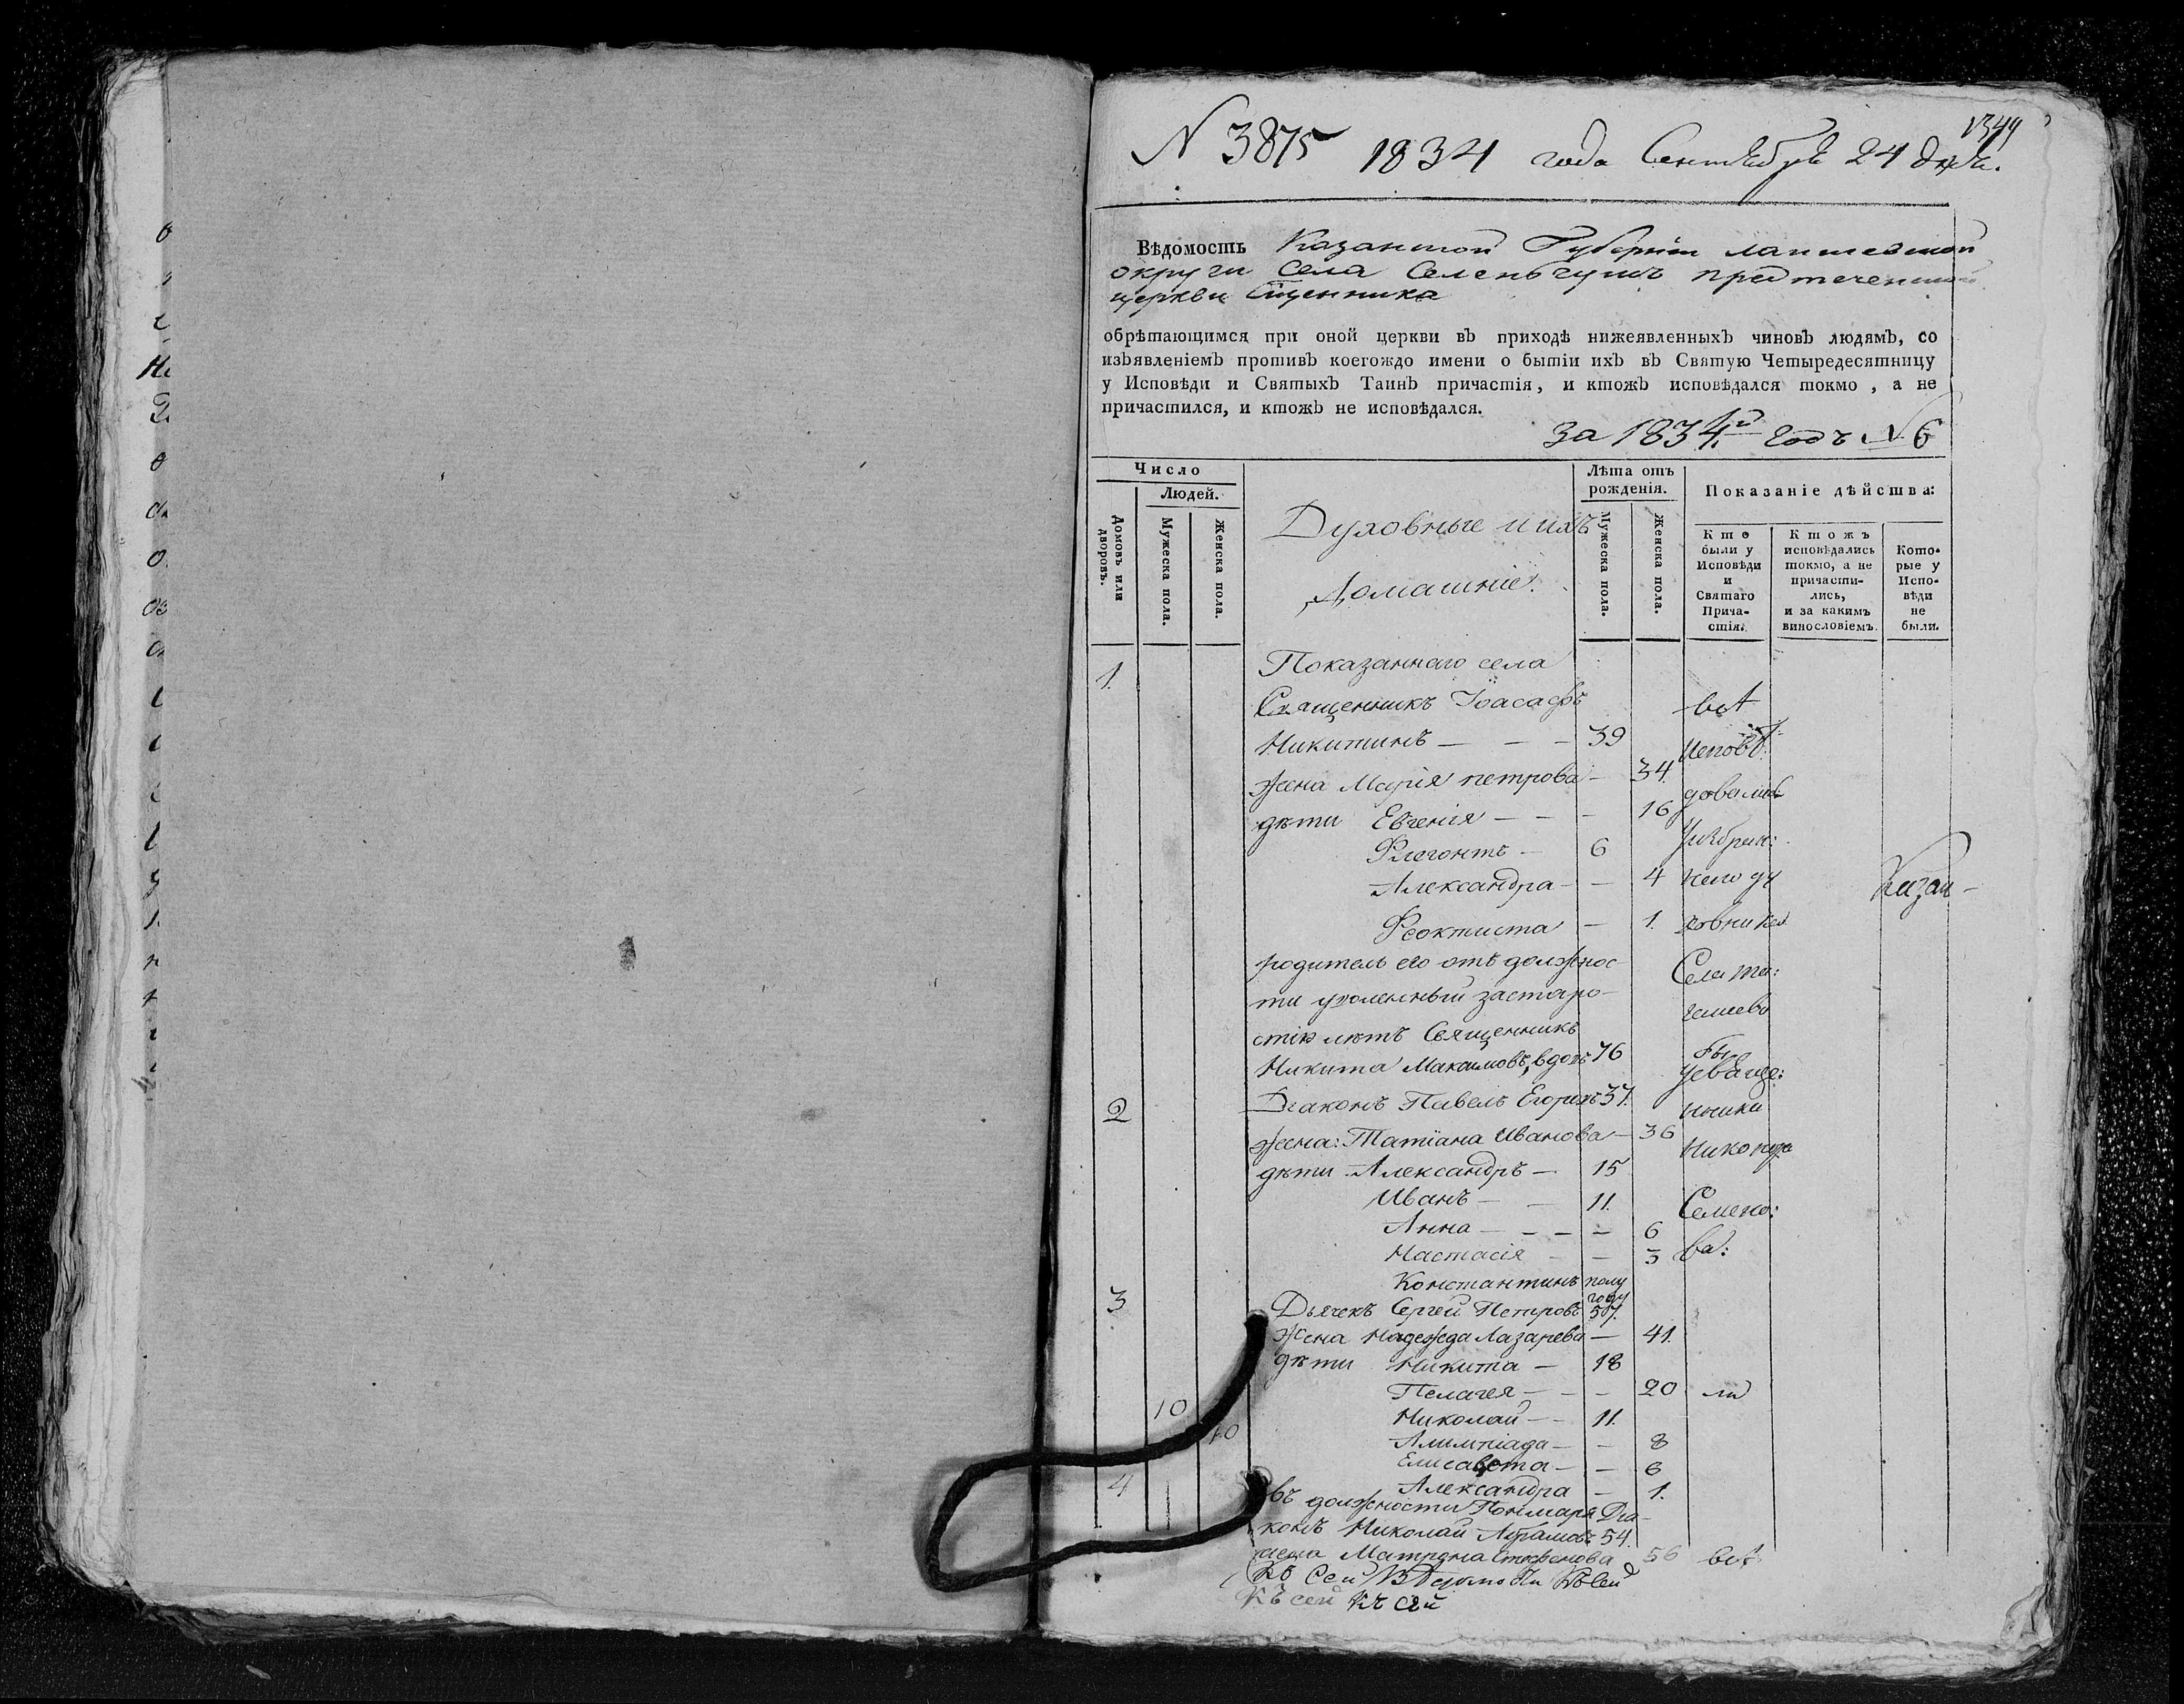 1344
N 3875 1834 года Сентября 24 дня.
Вѣдомость Казанской Губерніи лаишевской
округи села Селенгушъ предтеченской
церкви Сщенника
обрѣтающимся при оной церкви въ приходѣ нижеявленныхъ чиновъ людямъ, со
изъявленіемъ противъ коегождо имени о бытіи ихъ въ Святую Четыредесятницу
у Исповѣди и Святыхъ Таинъ причастія, и ктожъ исповѣдался токмо, а не
причастился, и ктожъ не исповѣдался.
за 1834й годъ N 6
Число
Людей.
Домовъ или дворовъ.
Мужеска пола.
Женска пола.
Духовные и ихъ
Домашніе.
Лѣта отъ
рожденія.
Мужеска пола.
Женска пола.
Показаніе дѣйства:
Кто
были у
Исповѣди
и
Святаго
Прича-
стія.
Ктожъ
исповѣдались
токмо, а не
причасти-
лись,
и за какимъ
винословіемъ.
Кото-
рые у
Испо-
вѣди
не
были.
1. Показаннаго села
Священникъ Іоасафъ всѣ
Никитинъ — — — 39 исповѣ:
жена Марія петрова — 34. довались
дѣти Евгенія — — — 16
Флегонтъ — 6
Александра — — 4
Казан-
Феоктиста — 1. ховника
родитель его отъ должнос- Села
ти уволенный застаро-
стію лѣтъ Священникъ
Никита Максимовъ, вдовъ 76
2 Діаконъ Павелъ Егоровъ 37.
жена: Татіана Иванова — 36
дѣти Александръ — 15
Иванъ — — 11. Семено:
Анна — — — — 6
Настасія — — 3 ва:
Константинъ полу
году
3 Дьячекъ Сергей Петровъ 57.
жена Надежда Лазарева — 41.
дѣти Никита — 18
Пелагея — — — 20 ли
10 Николай — — 11.
10 Алимпіада — — 8
Елисавета — — 6
4 Александра — 1.
въ должности Пономаря Діа-
конъ Николай Абрамовъ 54.
жена Матрона Стефанова 56 всѣ
Къ Сей Вѣдомости Къ Сей
Къ сей Къ сей